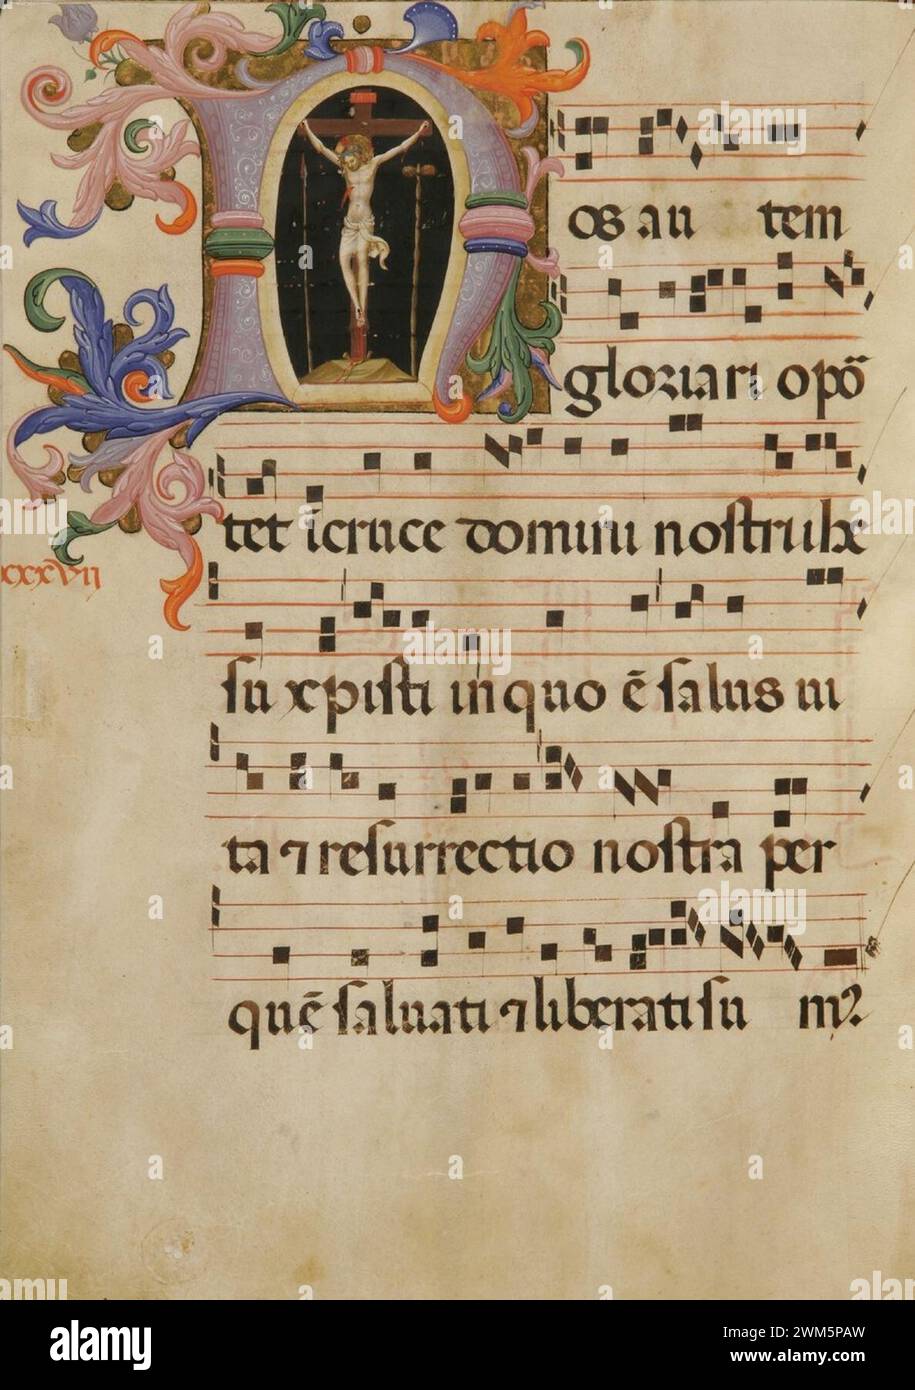 Nos au tem
gloriari opō
tet ī cruce domini nostri ihe
su xpisti in quo ē salus ui
ta ⁊ resurrectio nostra per
xxxvii
quē saluati ⁊ liberati su mꝰ
alamy
Image ID: 2WM5PAW
www.alamy.com